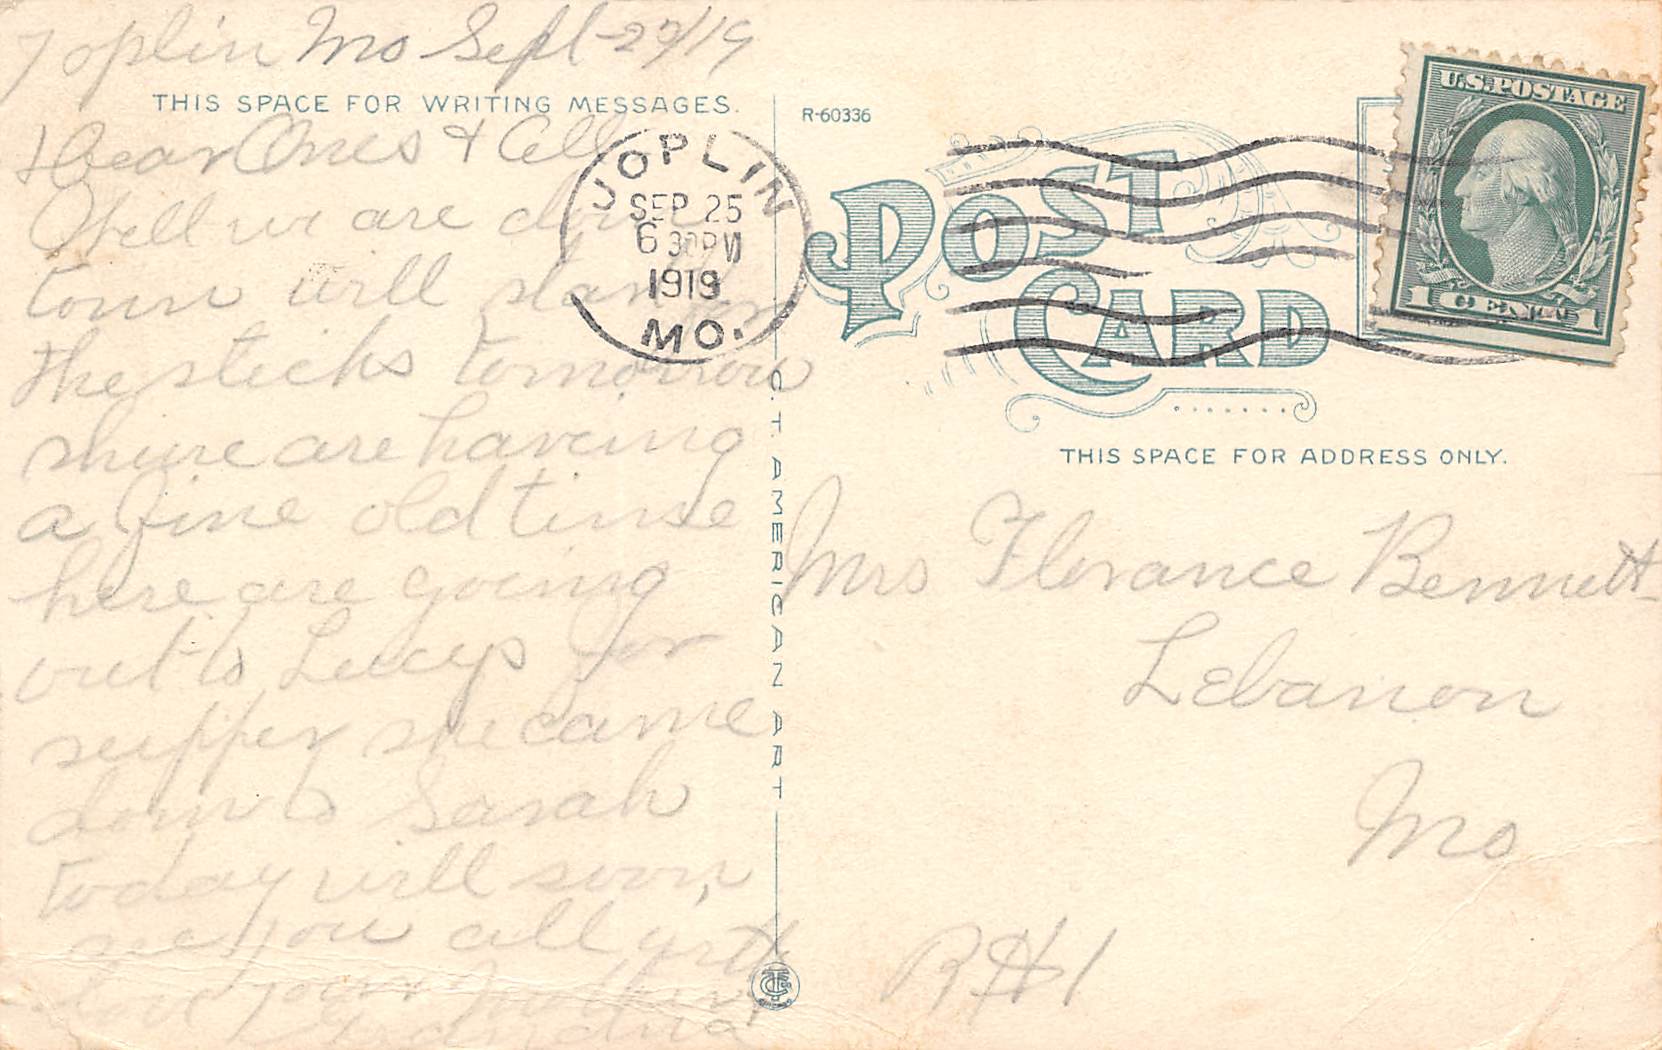 Joplin Mo Sept-29/19
THIS SPACE FOR WRITING MESSAGES.
Dear Ones & All
Well we are down
town will start for
the sticks tomorrow
shure are having
a fine old time
here are going
out to Lucys for
supper she came
down to Sarah
today will soon
see you all with
love your
Grandma
C.T. AMERICAN ART
JOPLIN
SEP 25
6 30 PM
1919
MO.
R-60336
POST CARD
U.S. POSTAGE
1 CENT 1
THIS SPACE FOR ADDRESS ONLY.
Mrs Florance Bennett
Lebanon
Mo
R#1